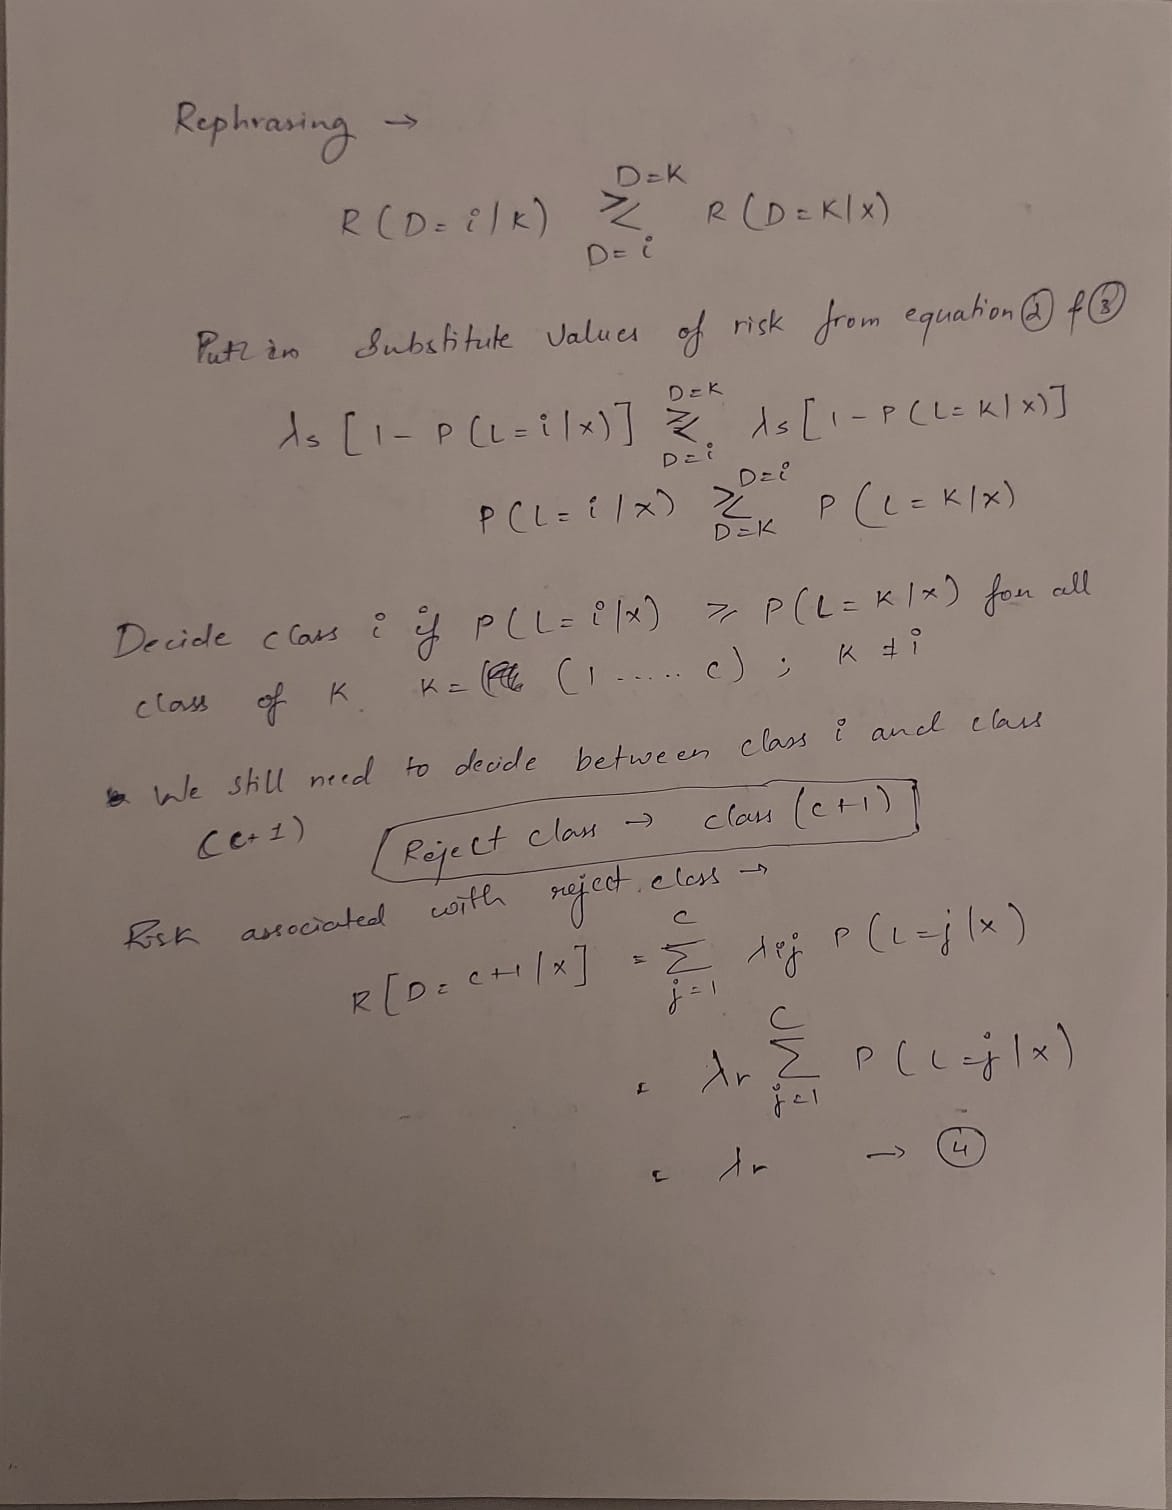 Rephrasing →
D=K
R(D=i|K) ≷ R(D=K|x)
D=i
Put in Substitute values of risk from equation ② & ③
D=K
λs [1-P(L=i|x)] ≷ λs[1-P(L=K|x)]
D=i
D=i
P(L=i|x) ≷ P(L=K|x)
D=K
Decide class i if P(L=i|x) ⩾ P(L=K|x) for all
class of K. K= (1.....c) ; K≠i
We still need to decide between class i and class
(c+1) Reject class → class (c+1)
Risk associated with reject class →
R[D=c+1|x] = Σ_{j=1}^{c} λij P(L=j|x)
= λr Σ_{j=1}^{C} P(L=j|x)
= λr → ④